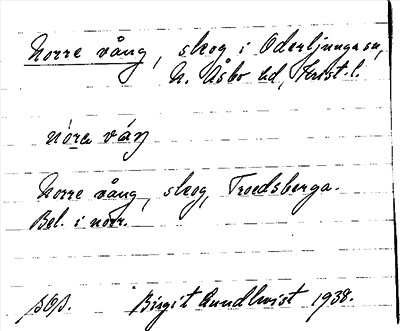 Norre vång, skog i Oderljunga sn,
N. Åsbo hd, Krist. l.
nórə váŋ
Norre vång, skog, Troedsberga.
Bel. i norr.
Birgit Lundkvist 1938.